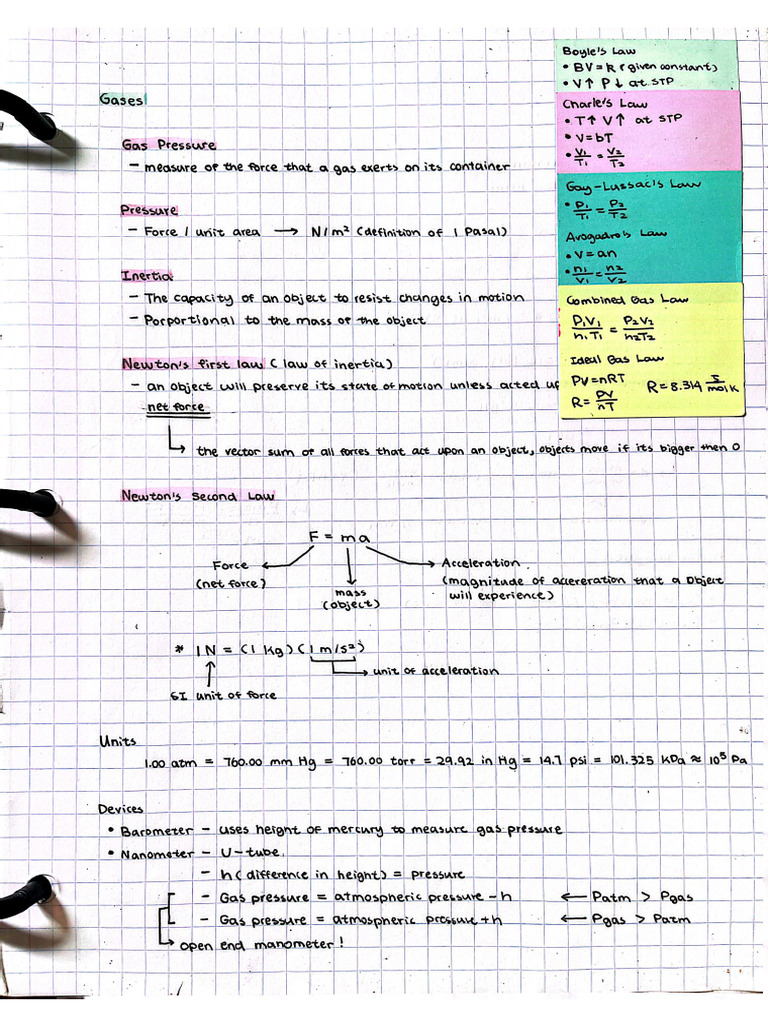 Gases
Gas Pressure
– measure of the force that a gas exerts on its container
Pressure
– Force / unit area → N/m² (definition of 1 Pasal)
Inertia
– The capacity of an object to resist changes in motion
– Porportional to the mass of the object
Newton's first law (law of inertia)
– an object will preserve its state of motion unless acted up
net force
↳ the vector sum of all forces that act upon an object, objects move if its bigger then 0
Newton's Second Law
F = ma
Force
(net force)
mass
(object)
Acceleration
(magnitude of accereration that a Object
will experience)
* 1N = (1 kg)(1 m/s²)
→ unit of acceleration
SI unit of force
Units
1.00 atm = 760.00 mm Hg = 760.00 torr = 29.92 in Hg = 14.7 psi = 101.325 kPa ≈ 10⁵ Pa
Devices
• Barometer – uses height of mercury to measure gas pressure
• Nanometer – U-tube
– h (difference in height) = pressure
– Gas pressure = atmospheric pressure - h ← Patm > Pgas
– Gas pressure = atmospheric pressure + h ← Pgas > Patm
↳ open end manometer!
Boyle's Law
• BV = R (given constant)
• V↑ P↓ at STP
Charle's Law
• T↑ V↑ at STP
• V=bT
• V₁/T₁ = V₂/T₂
Gay-Lussac's Law
• P₁/T₁ = P₂/T₂
Avogadro's Law
• V=an
• n₁/V₁ = n₂/V₂
Combined Gas Law
P₁V₁/n₁T₁ = P₂V₂/n₂T₂
Ideal Gas Law
PV=nRT
R = PV/nT
R = 8.314 J/mol K